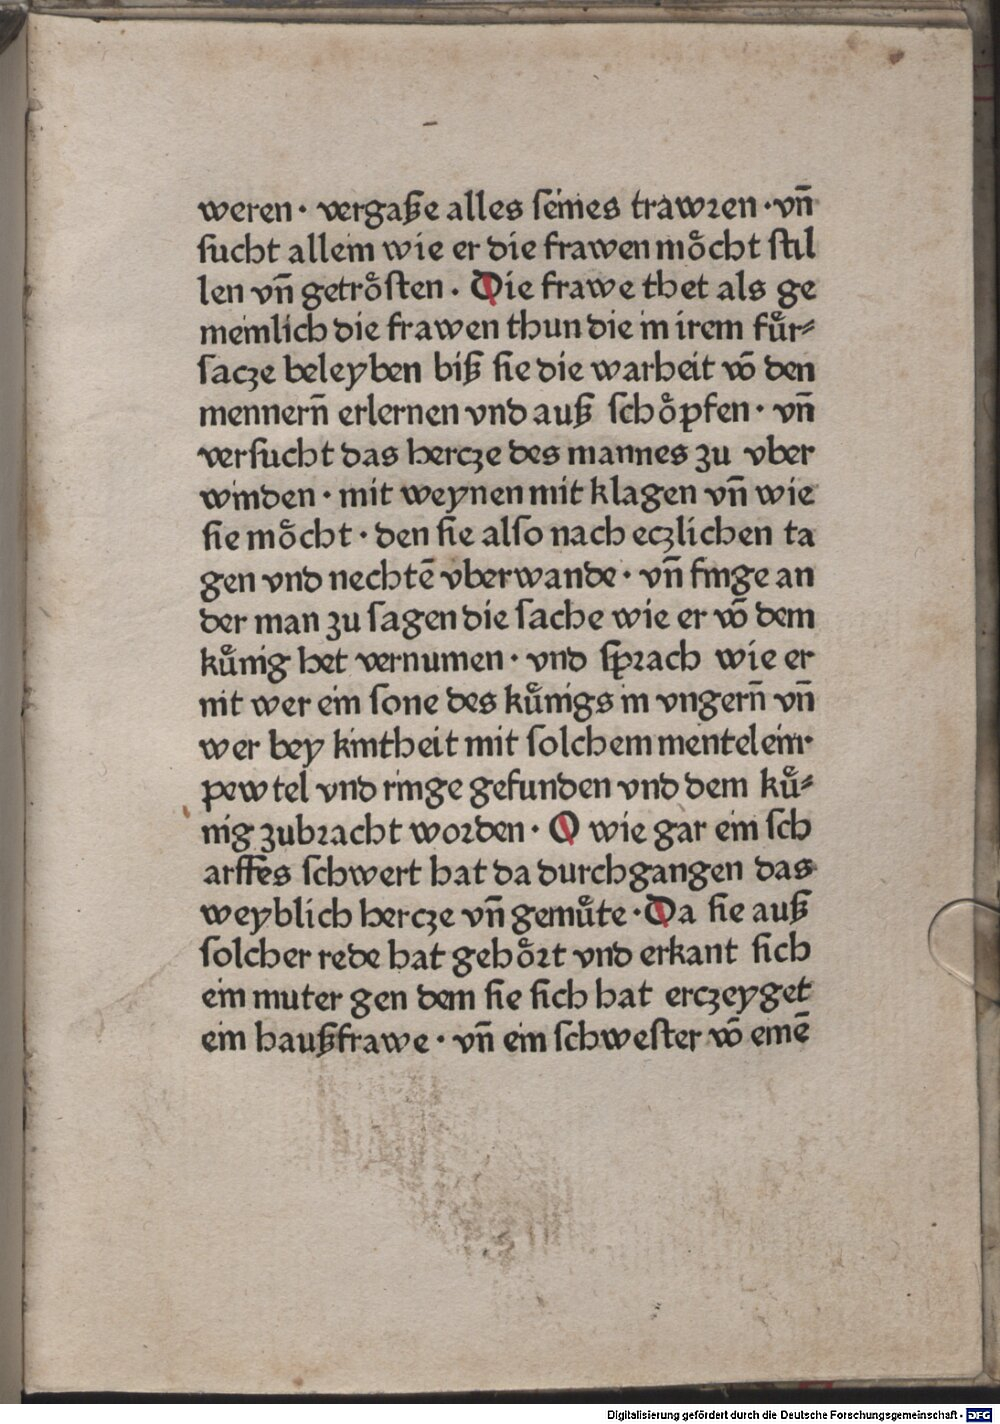 weren · vergaße alles ſeines trawꝛen · vn̄
ſucht allein wie er die frawen moͤcht ſtil
len vn̄ getroͤſten · Die frawe thet als ge
meinlich die frawen thun die in irem fuͤr⸗
ſacze beleyben biß ſie die warheit vō den
mennern̄ erlernen vnd auß ſchoͤpfen · vn̄
verſucht das hercze des mannes zu vber
winden · mit weynen mit klagen vn̄ wie
ſie moͤcht · den ſie alſo nach eczlichen ta
gen vnd nechtē vberwande · vn̄ finge an
der man zu ſagen die ſache wie er vō dem
kuͤnig het vernumen · vnd ſpꝛach wie er
nit wer ein ſone des kuͤnigs in vngern̄ vn̄
wer bey kintheit mit ſolchem mentelein·
pewtel vnd ringe gefunden vnd dem kuͤ⸗
nig zubꝛacht woꝛden · O wie gar ein ſch
arffes ſchwert hat da durchgangen das
weyblich hercze vn̄ gemuͤte · Da ſie auß
ſolcher rede hat gehoͤꝛt vnd erkant ſich
ein muter gen dem ſie ſich hat erczeyget
ein haußfrawe · vn̄ ein ſchweſter vō einē
Digitalisierung gefördert durch die Deutsche Forschungsgemeinschaft - DFG